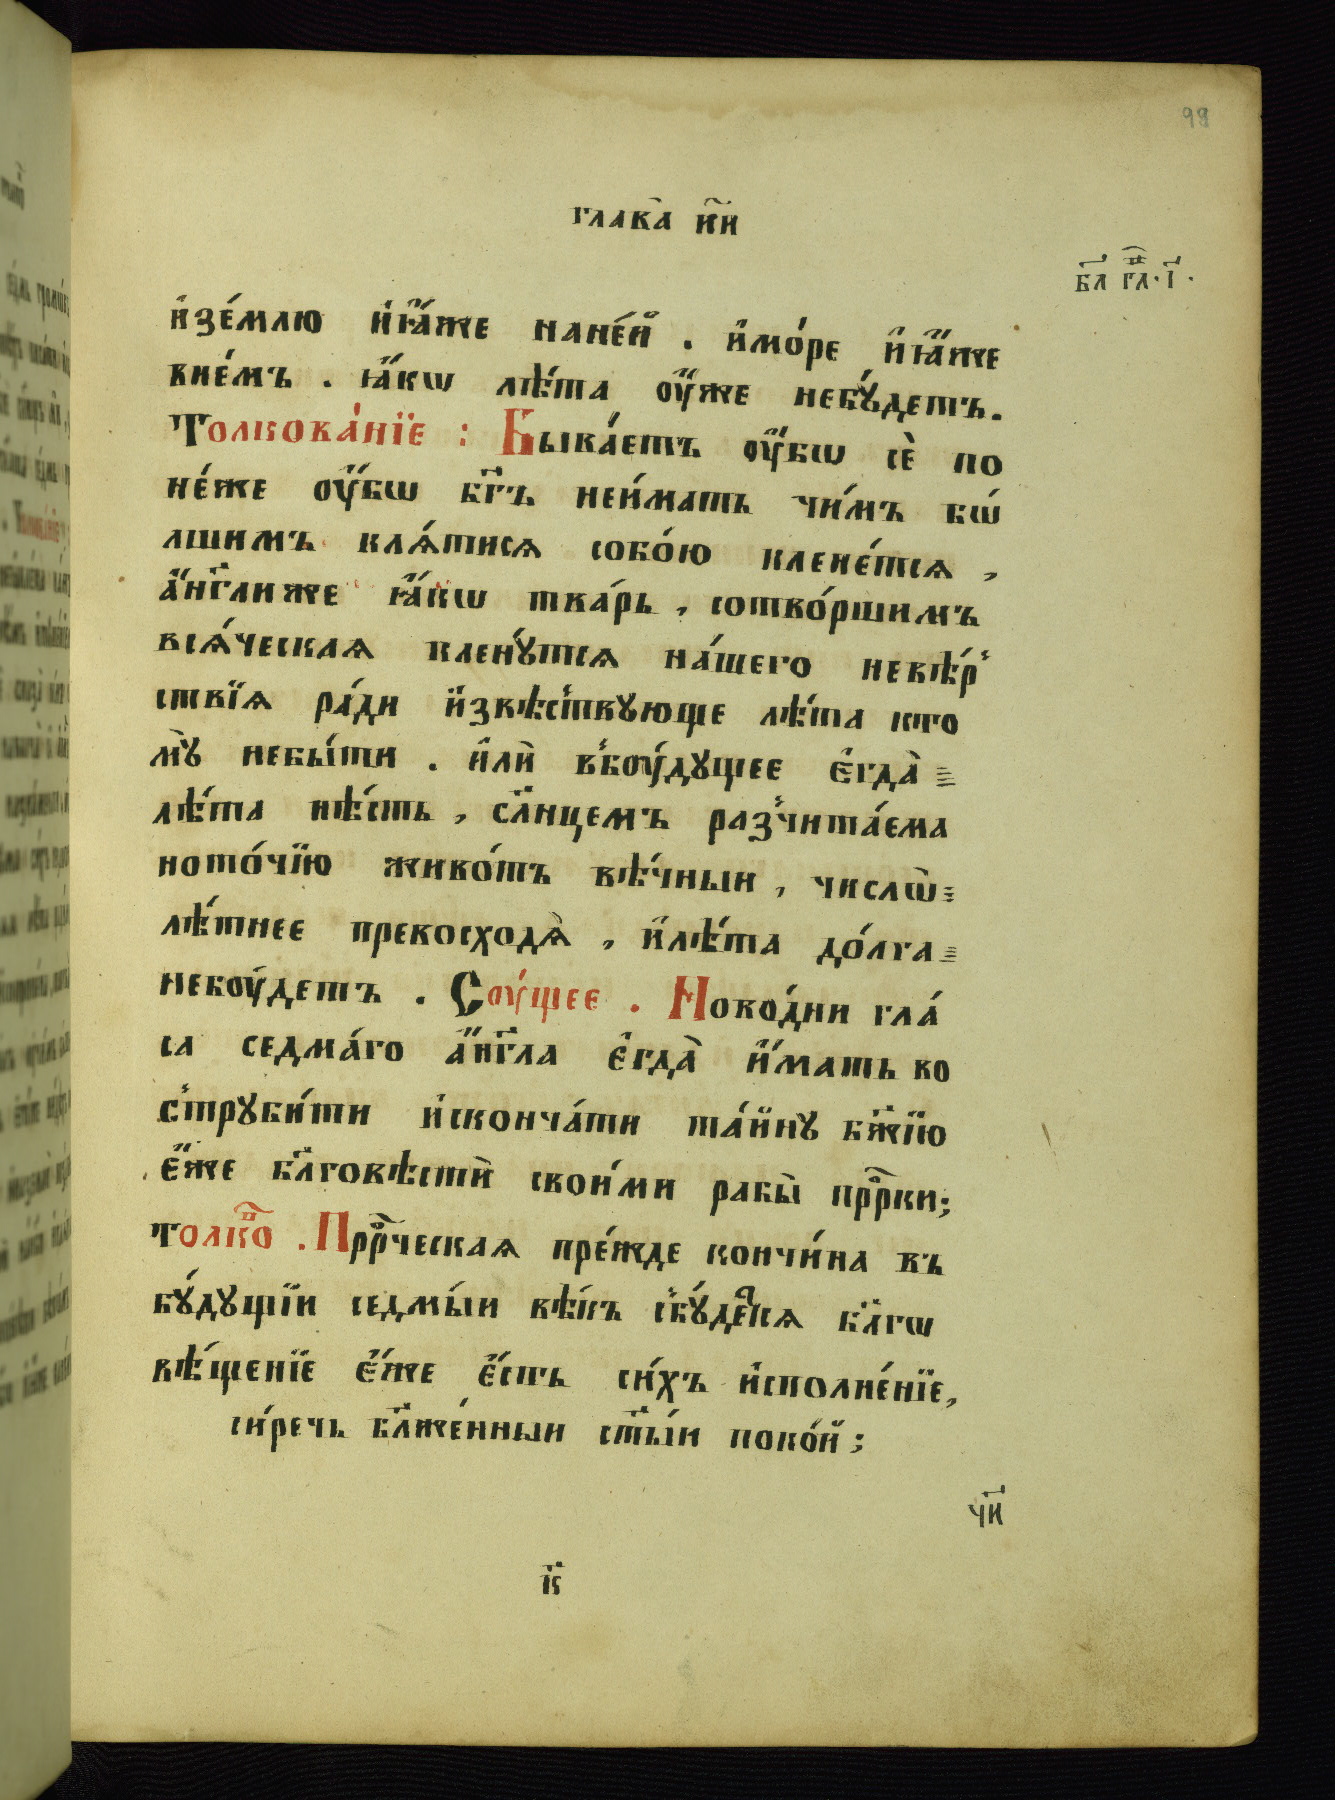 98
глава̀ и҃и
Бл҃ гл҃. і҃.
и҆зе́млю и҆ꙗ҆́же нане́и҆ . и҆мо́ре и҆ꙗ҆́же
внѐмъ . ꙗ҆́кѡ лѣ́та оу҆́же небꙋ́детъ.
Толкова́нїе : Быва́етъ оу҆́бѡ сѐ по
не́же оу҆́бѡ бг҃ъ неи́мать чи́мъ бѡ́
лшимъ клѧ́тисѧ собо́ю клене́тсѧ ,
а҆́нг҃лиже ꙗ҆́кѡ тва́рь , сотво́ршимъ
всѧ́ческаѧ кленꙋ́тсѧ на́шего невѣ́р
ствїѧ ра́ди и҆звѣ́ствꙋюще лѣ́та кто
мꙋ̀ небы́ти . и҆лѝ вбоу́дꙋщее є҆гда̀
лѣ́та нѣ́сть , сл҃нцемъ разчита́ема
ното́чїю живо́тъ вѣ́чныи , числѡ̀
лѣ́тнее превосходѧ̀ , и҆лѣ́та до́лга
небоу́детъ . Соу́щее .Ново́дни гла́
са седма́го а҆́нг҃ла є҆гда̀ и҆́мать во
струби́ти и҆сконча́ти та́инꙋ бж҃їю
є҆́же бл҃говѣстѝ свои́ми рабы̀ прⷪ҇рки;
толкⷪ҇в . Прⷪ҇рческаѧ пре́жде кончи́на въ
бꙋ́дꙋщїи седмы́и вѣ́къ сбꙋ́детсѧ бл҃гѡ
вѣ́щенїе є҆́же є҆́сть си́хъ и҆сполне́нїе,
си́речь бл҃же́нныи ст҃ы́и поко́и;
ч҃и
к҃